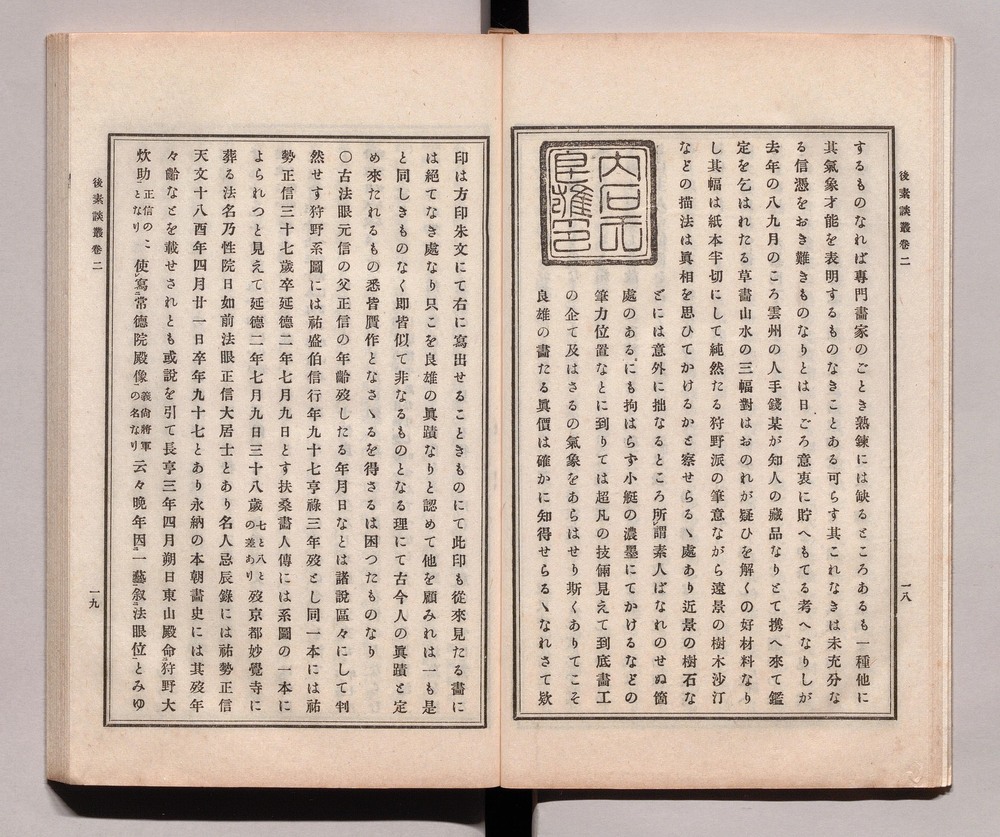 後素談叢卷二
一八
するものなれば専門畫家のごとき熟錬には缺るところあるも一種他に
其氣象才能を表明するものなきことある可らす其これなきは未充分な
る信憑をおき難きものなりとは日ごろ意衷に貯へもてる考へなりしが
去年の八九月のころ雲州の人手錢某が知人の藏品なりとて携へ來て鑑
定を乞はれたる草畫山水の三幅對はおのれが疑ひを解くの好材料なり
し其幅は紙本半切にして純然たる狩野派の筆意ながら遠景の樹木沙汀
などの描法は眞相を思ひてかけるかと察せらるヽ處あり近景の樹石な
どには意外に拙なるところ所謂素人ばなれのせぬ箇
處のあるにも拘はらす小艇の濃墨にてかけるなどの
筆力位置なとに到りては超凡の技倆見えて到底畫工
の企て及はさるの氣象をあらはせり斯くありてこそ
良雄の畫たる眞價は確かに知得せらるヽなれさて欵
内石
臣雄
印は方印朱文にて右に寫出せることきものにて此印も從來見たる畫に
は絕てなき處なり只こを良雄の眞蹟なりと認めて他を顧みれは一も是
と同しきものなく即皆似て非なるものとなる理にて古今人の眞蹟と定
め來たれるもの悉皆贋作となさヽるを得さるは困つたものなり
〇古法眼元信の父正信の年齡歿したる年月日などは諸說區々にして判
然せす狩野系圖には祐盛伯信行年九十七亨祿三年歿とし同一本には祐
勢正信三十七歲卒延德二年七月九日とす扶桑畫人傳には系圖の一本に
よられつと見えて延德二年七月九日三十八歲七と八との差あり歿京都妙覺寺に
葬る法名乃性院日如前法眼正信大居士とあり名人忌辰錄には祐勢正信
天文十八酉年四月廿一日卒年九十七とあり永納の本朝畫史には其歿年
々齡なとを載せされとも或說を引て長亨三年四月朔日東山殿命狩野大
炊助正信のことなり使寫常德院殿像義尙將軍の名なり云々晩年因一藝叙法眼位とみゆ
後素談叢卷二
一九